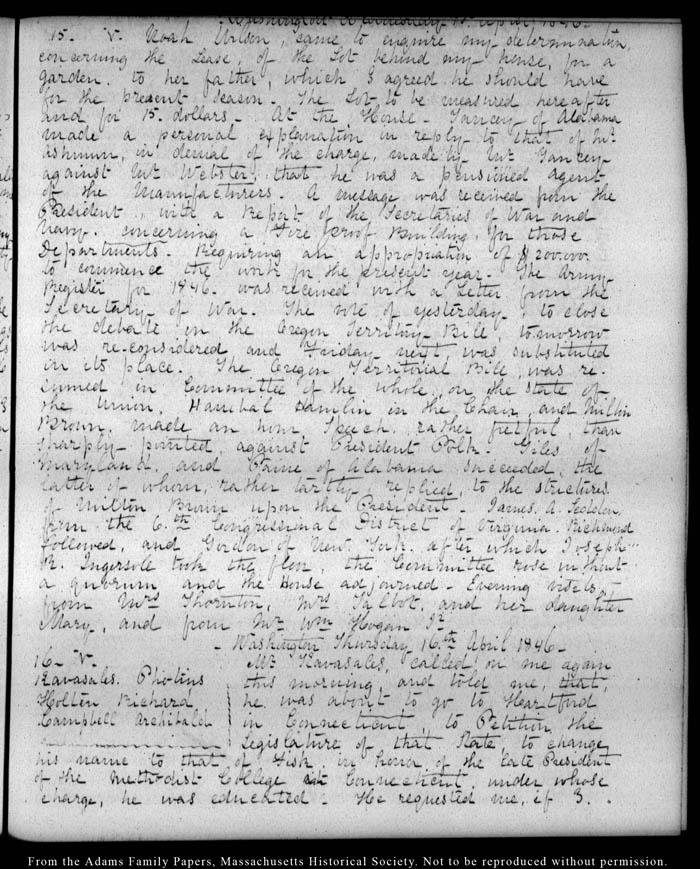 Washington Wednesday 15. April 1846.
15. V. Noah Wilson, came to enquire my determination,
concerning the Lease, of the Lot behind my house, for a
garden. to her father, which I agreed he should have
for the present season. The Lot, to be measured hereafter
and for 15. dollars. At the House. Yancey of Alabama
made a personal explanation in reply to that of Mr
Ashmun, in denial of the charge, made by Mr Yancey
against Mr Webster, that he was a pensioned agent
of the Manufacturers. A message was received from the
President, with a Report of the Secretaries of War and
Navy. concerning a Fire Proof Building, for those
Departments. Requiring an appropriation of $200.000.
to commence the work for the present year. The Army
Register for 1846. was received with a Letter from the
Secretary of War. The vote of yesterday, to close
the debate in the Oregon Territory Bill, tomorrow
was re-considered and Friday next, was substituted
in its place. The Oregon Territorial Bill, was re-
sumed in Committee of the whole, on the state of
the Union, Hannibal Hamlin in the Chair, and Milton
Brown, made an hour Speech, rather fretful, than
sharply pointed, against President Polk. Giles of
Maryland, and Payne of Alabama succeeded, the
latter of whom, rather tartly replied, to the strictures
of Milton Brown upon the President. James. A. Seddon,
from the 6.th Congressional District of Virginia. Richmond
followed, and Gordon of New. York. after which Joseph
R. Ingersoll took the floor, the Committee rose without
a quorum and the House adjourned. Evening visits,
from Mrs Thornton, Mrs Talbot, and her daughter
Mary, and from Mr Wm Hogan Sr.
- Washington Thursday 16.th April 1846-
16. V. Mr Kavasales, called, on me again
Kavasales. Photius this morning and told me, that,
Holten Richard he was about to go to Hartford
Campbell Archibald in Connecticut, to Petition the
Legislature of that State, to change
his name to that of Fisk, in honor of the late President
of the Methodist College at Connecticut, under whose
charge, he was educated. He requested me, if I.
From the Adams Family Papers, Massachusetts Historical Society. Not to be reproduced without permission.